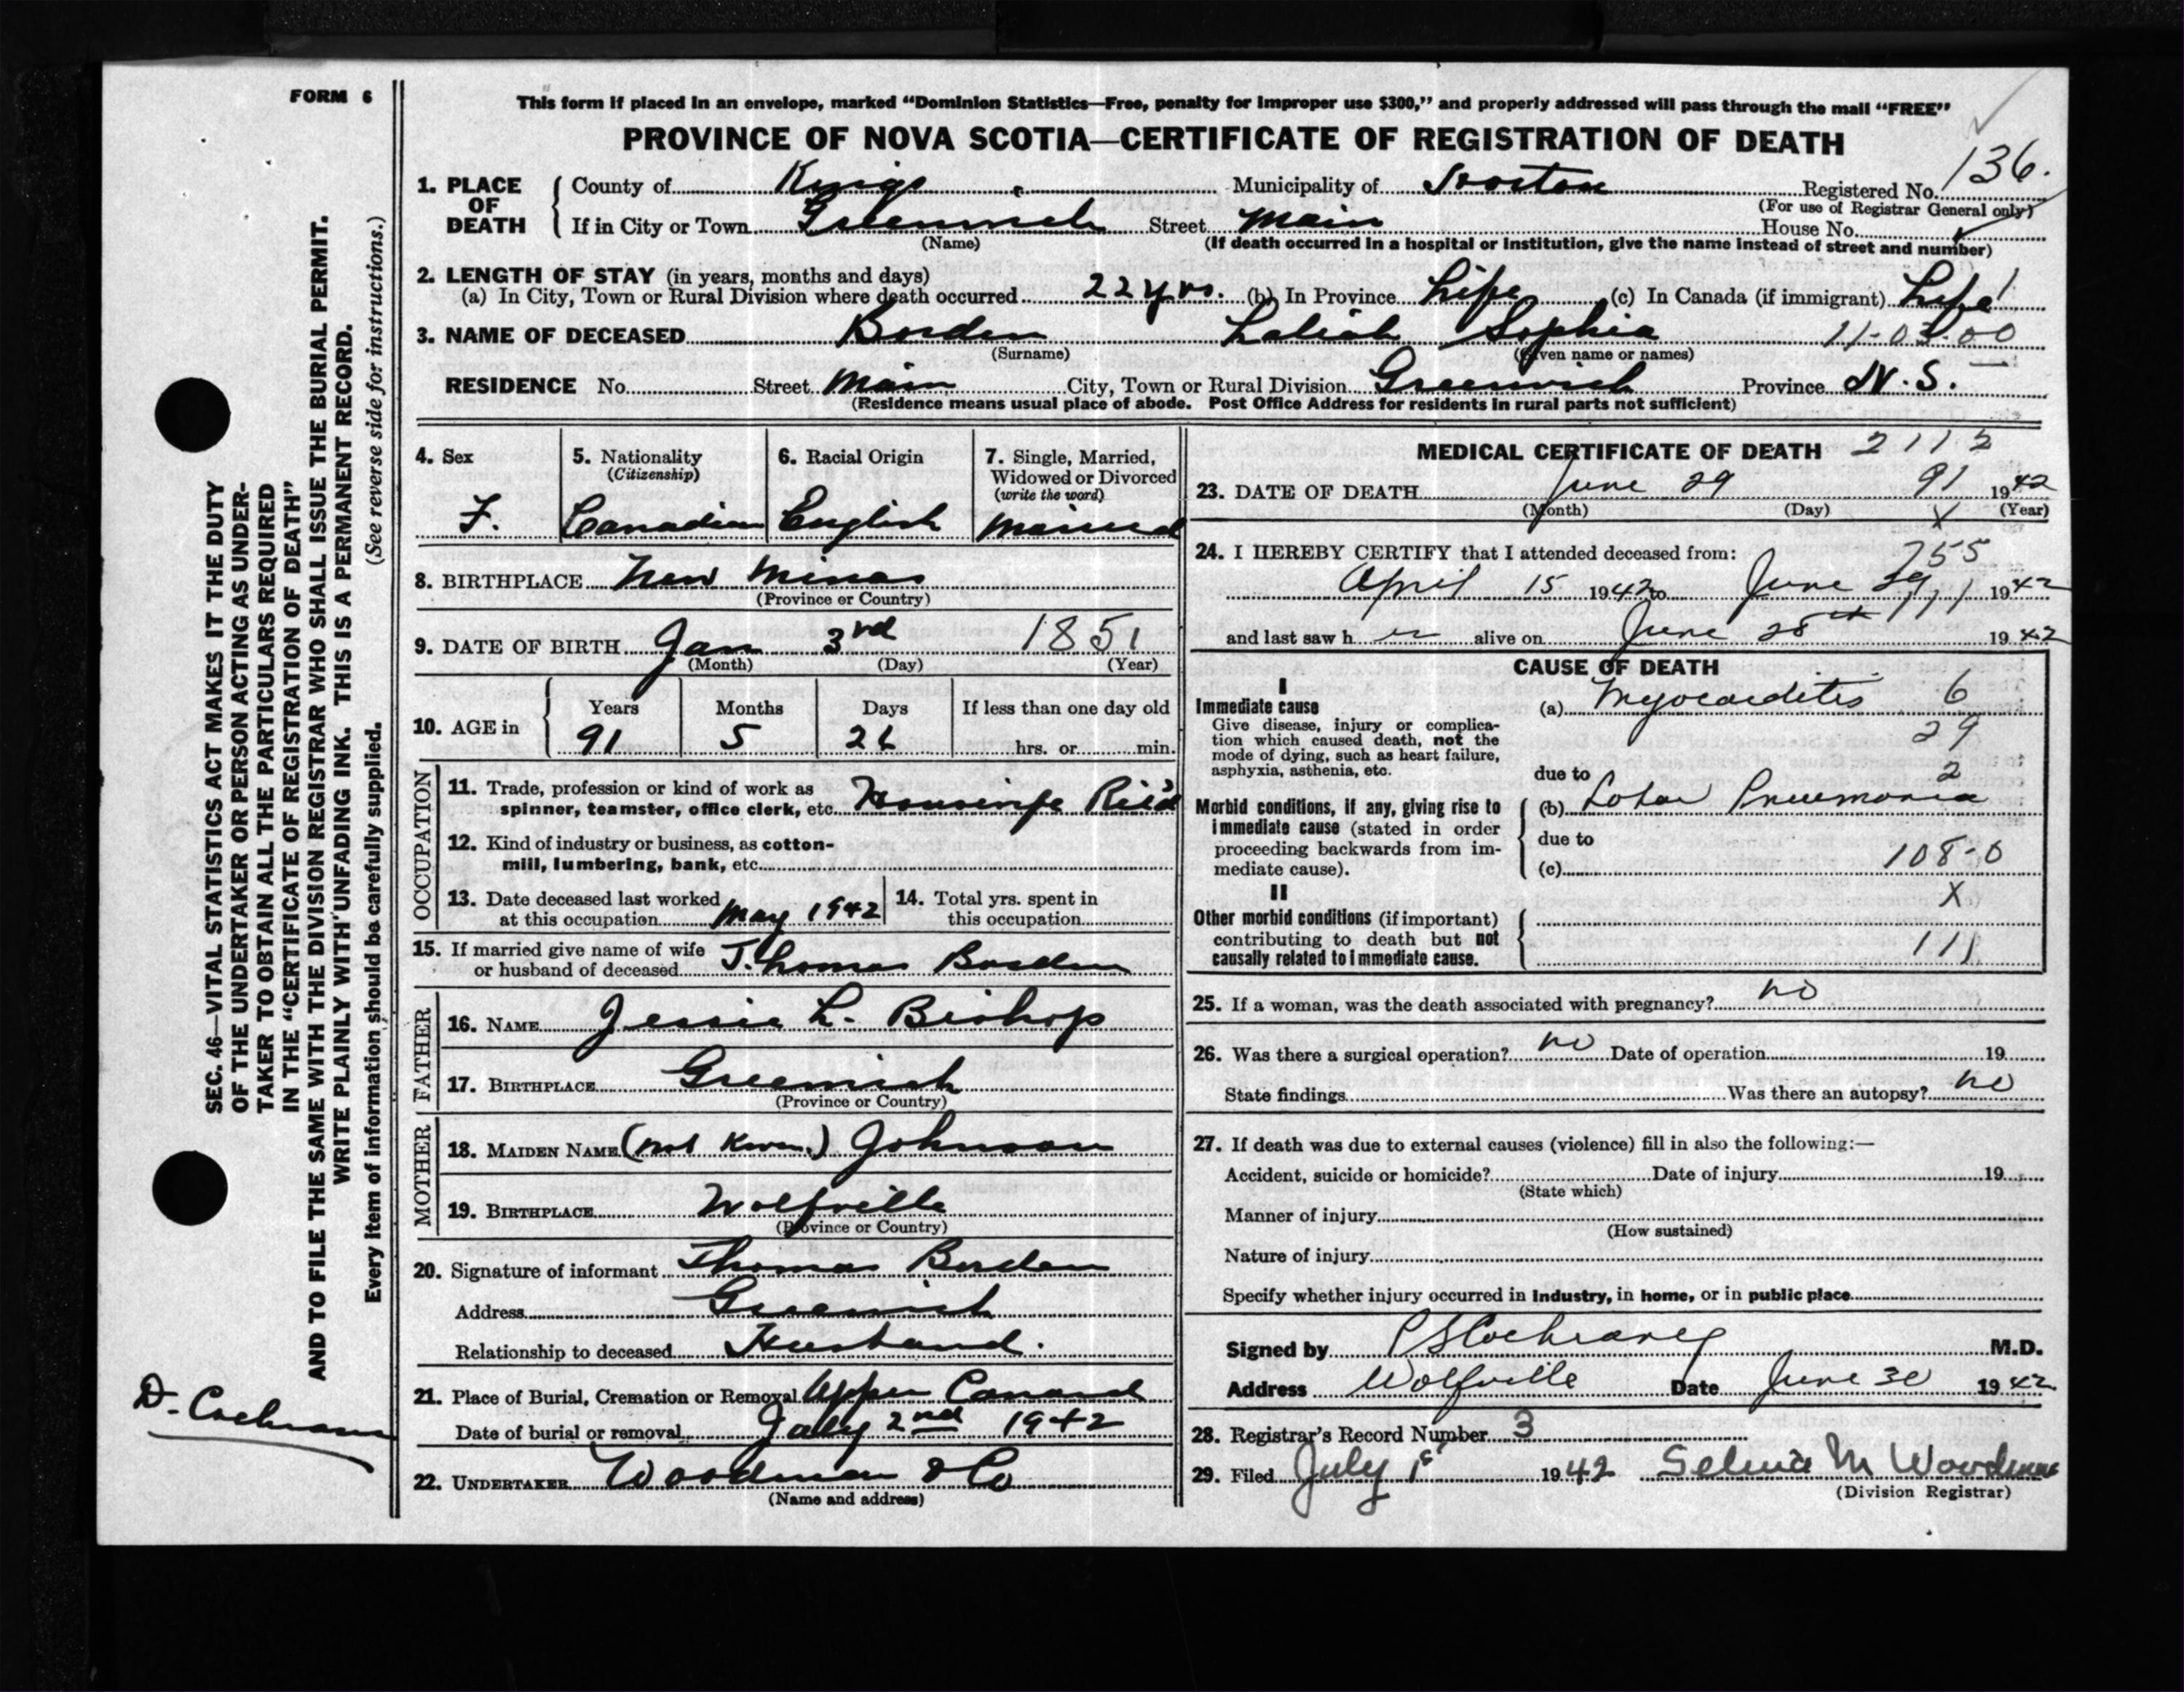 FORM 6
This form if placed in an envelope, marked “Dominion Statistics—Free, penalty for improper use $300,” and properly addressed will pass through the mail “FREE”
PROVINCE OF NOVA SCOTIA—CERTIFICATE OF REGISTRATION OF DEATH
136.
1. PLACE OF DEATH County of Kings Municipality of Horton Registered No.
(For use of Registrar General only)
If in City or Town Greenwich Street Main House No.
(Name) (If death occurred in a hospital or institution, give the name instead of street and number)
2. LENGTH OF STAY (in years, months and days)
(a) In City, Town or Rural Division where death occurred 22 yrs. (b) In Province Life (c) In Canada (if immigrant) Life
3. NAME OF DECEASED Borden Laliah Sophia 11-03-00
(Surname) (Given name or names)
RESIDENCE No. Street Main City, Town or Rural Division Greenwich Province N.S.
(Residence means usual place of abode. Post Office Address for residents in rural parts not sufficient)
4. Sex F.
5. Nationality (Citizenship) Canadian
6. Racial Origin English
7. Single, Married, Widowed or Divorced (write the word) Married
8. BIRTHPLACE New Minas
(Province or Country)
9. DATE OF BIRTH Jan 3rd 1851
(Month) (Day) (Year)
10. AGE in Years Months Days If less than one day old
91 5 26 hrs. or min.
OCCUPATION
11. Trade, profession or kind of work as
spinner, teamster, office clerk, etc. Housewife Rti'd
12. Kind of industry or business, as cotton-
mill, lumbering, bank, etc.
13. Date deceased last worked
at this occupation May 1942
14. Total yrs. spent in
this occupation
15. If married give name of wife
or husband of deceased Thomas Borden
FATHER
16. NAME Jessie L. Bishop
17. BIRTHPLACE Greenwich
(Province or Country)
MOTHER
18. MAIDEN NAME (not Known) Johnson
19. BIRTHPLACE Wolfville
(Province or Country)
20. Signature of informant Thomas Borden
Address Greenwich
Relationship to deceased Husband.
21. Place of Burial, Cremation or Removal Upper Canard
Date of burial or removal July 2nd 1942
22. UNDERTAKER Woodman & Co
(Name and address)
MEDICAL CERTIFICATE OF DEATH 2112
23. DATE OF DEATH June 29 91 1942
(Month) (Day) X (Year)
24. I HEREBY CERTIFY that I attended deceased from: 755
April 15 1942 to June 29 1942
111
and last saw h er alive on June 28th 1942
CAUSE OF DEATH
I
Immediate cause
Give disease, injury or complica-
tion which caused death, not the
mode of dying, such as heart failure,
asphyxia, asthenia, etc.
(a) Myocarditis 6
29
due to 2
Morbid conditions, if any, giving rise to
immediate cause (stated in order
proceeding backwards from im-
mediate cause).
(b) Lobar Pneumonia
due to
(c) 108-0
X
II
Other morbid conditions (if important)
contributing to death but not
causally related to immediate cause.
111
25. If a woman, was the death associated with pregnancy? no
26. Was there a surgical operation? no Date of operation 19
State findings Was there an autopsy? no
27. If death was due to external causes (violence) fill in also the following:—
Accident, suicide or homicide? Date of injury 19
(State which)
Manner of injury
(How sustained)
Nature of injury
Specify whether injury occurred in industry, in home, or in public place
Signed by Cochrane M.D.
Address Wolfville Date June 30 1942
28. Registrar's Record Number 3
29. Filed July 1st 1942 Selina M Woodman
(Division Registrar)
SEC. 46—VITAL STATISTICS ACT MAKES IT THE DUTY
OF THE UNDERTAKER OR PERSON ACTING AS UNDER-
TAKER TO OBTAIN ALL THE PARTICULARS REQUIRED
IN THE “CERTIFICATE OF REGISTRATION OF DEATH”
AND TO FILE THE SAME WITH THE DIVISION REGISTRAR WHO SHALL ISSUE THE BURIAL PERMIT.
WRITE PLAINLY WITH UNFADING INK. THIS IS A PERMANENT RECORD.
Every item of information should be carefully supplied. (See reverse side for instructions.)
D. Cochrane